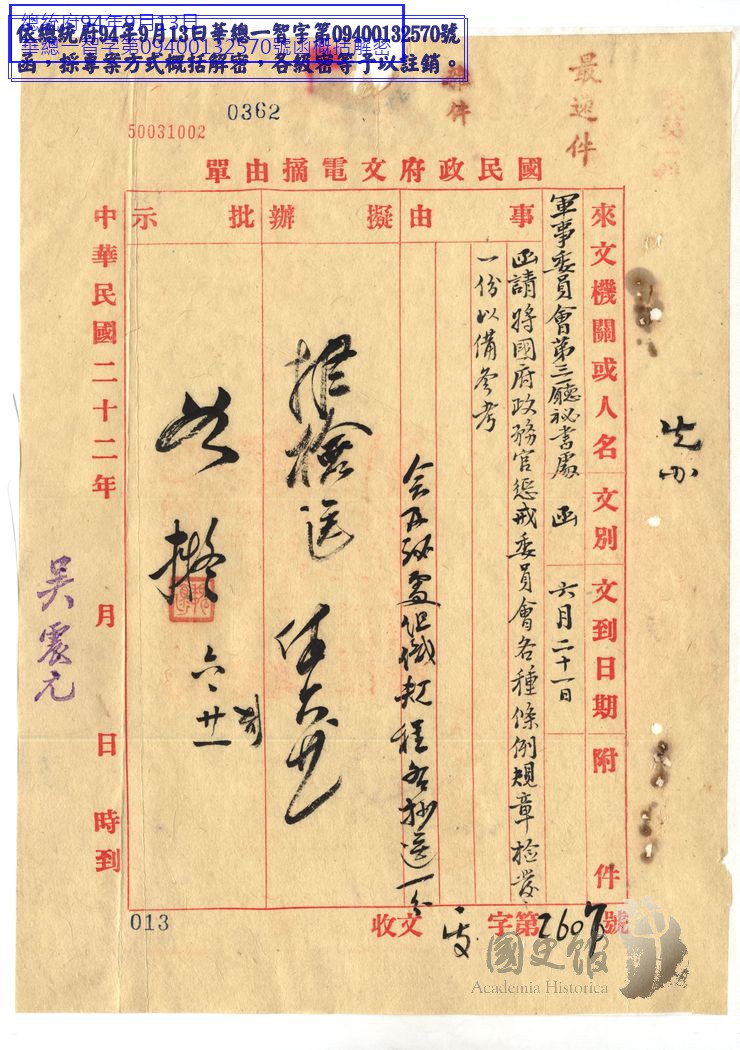 總統府94年9月13日
華總一智字第09400132570號函概括解密
依總統府94年9月13日華總一智字第09400132570號
函，採專案方式概括解密，各級密等予以註銷。
0362
50031002
最速件
國民政府文電摘由單
來文機關或人名
文別
文到日期
附件
軍事委員會第三廳祕書處
函
六月二十一日
事由
函請將國府政務官懲戒委員會各種條例規章檢發
一份以備參考
擬辦
批示
擬檢送
如擬
六、廿一
先办
中華民國二十二年 月 日 時到
吳震元
013
收文 字第2607號
國史館
Academia Historica